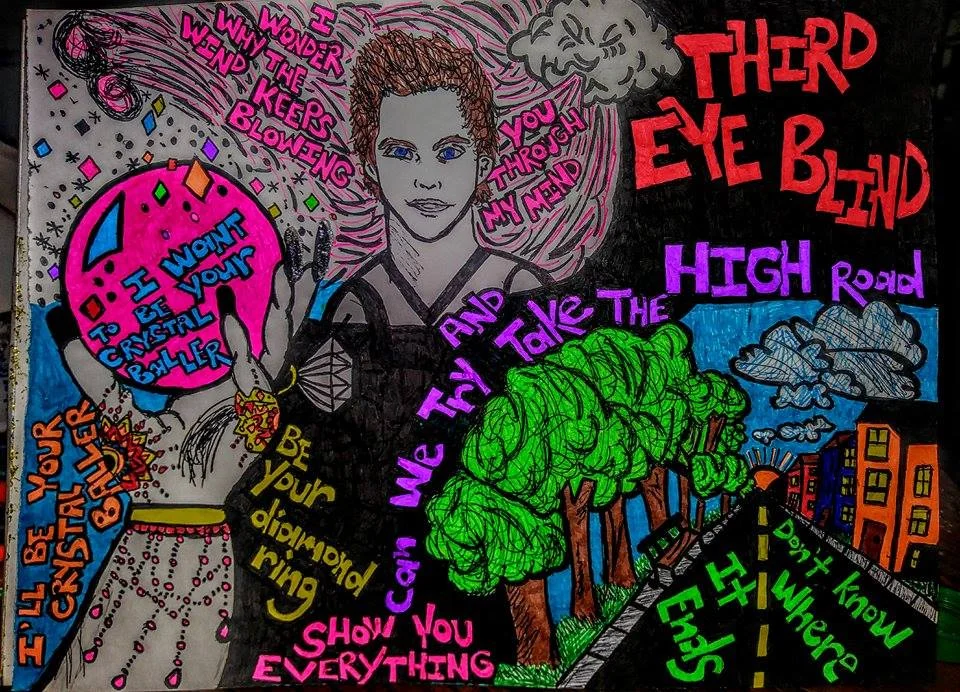 THIRD
EYE BLIND
I
WONDER
WHY THE
WIND KEEPS
BLOWING
YOU
THROUGH
MY MIND
I WANT
TO BE YOUR
CRYSTAL
BALLER
I'LL BE YOUR
CRYSTAL
BALLER
BE
Your
diamond
ring
SHOW YOU
EVERYTHING
Can We Try AND Take THE HIGH Road
Don't know
Where
It
Ends